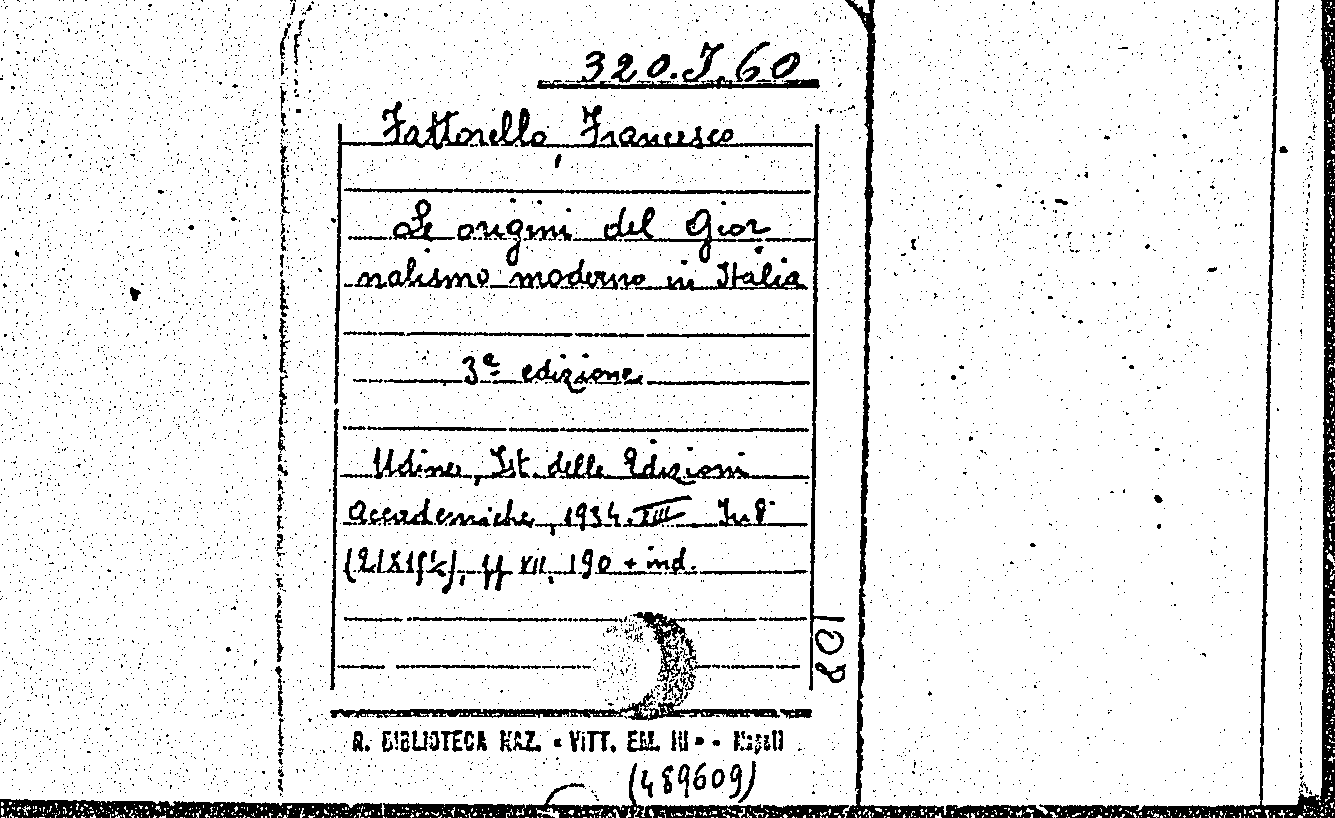 320.J.60
Fattorello, Francesco
Le origini del Gior
nalismo moderno in Italia
3ª edizione
Udine, Ist. delle Edizioni
Accademiche, 1934.XIII In 8°
(21X15½), pp VII, 190 + ind.
108
R. BIBLIOTECA NAZ. « VITT. EM. III » - Napoli
(489609)